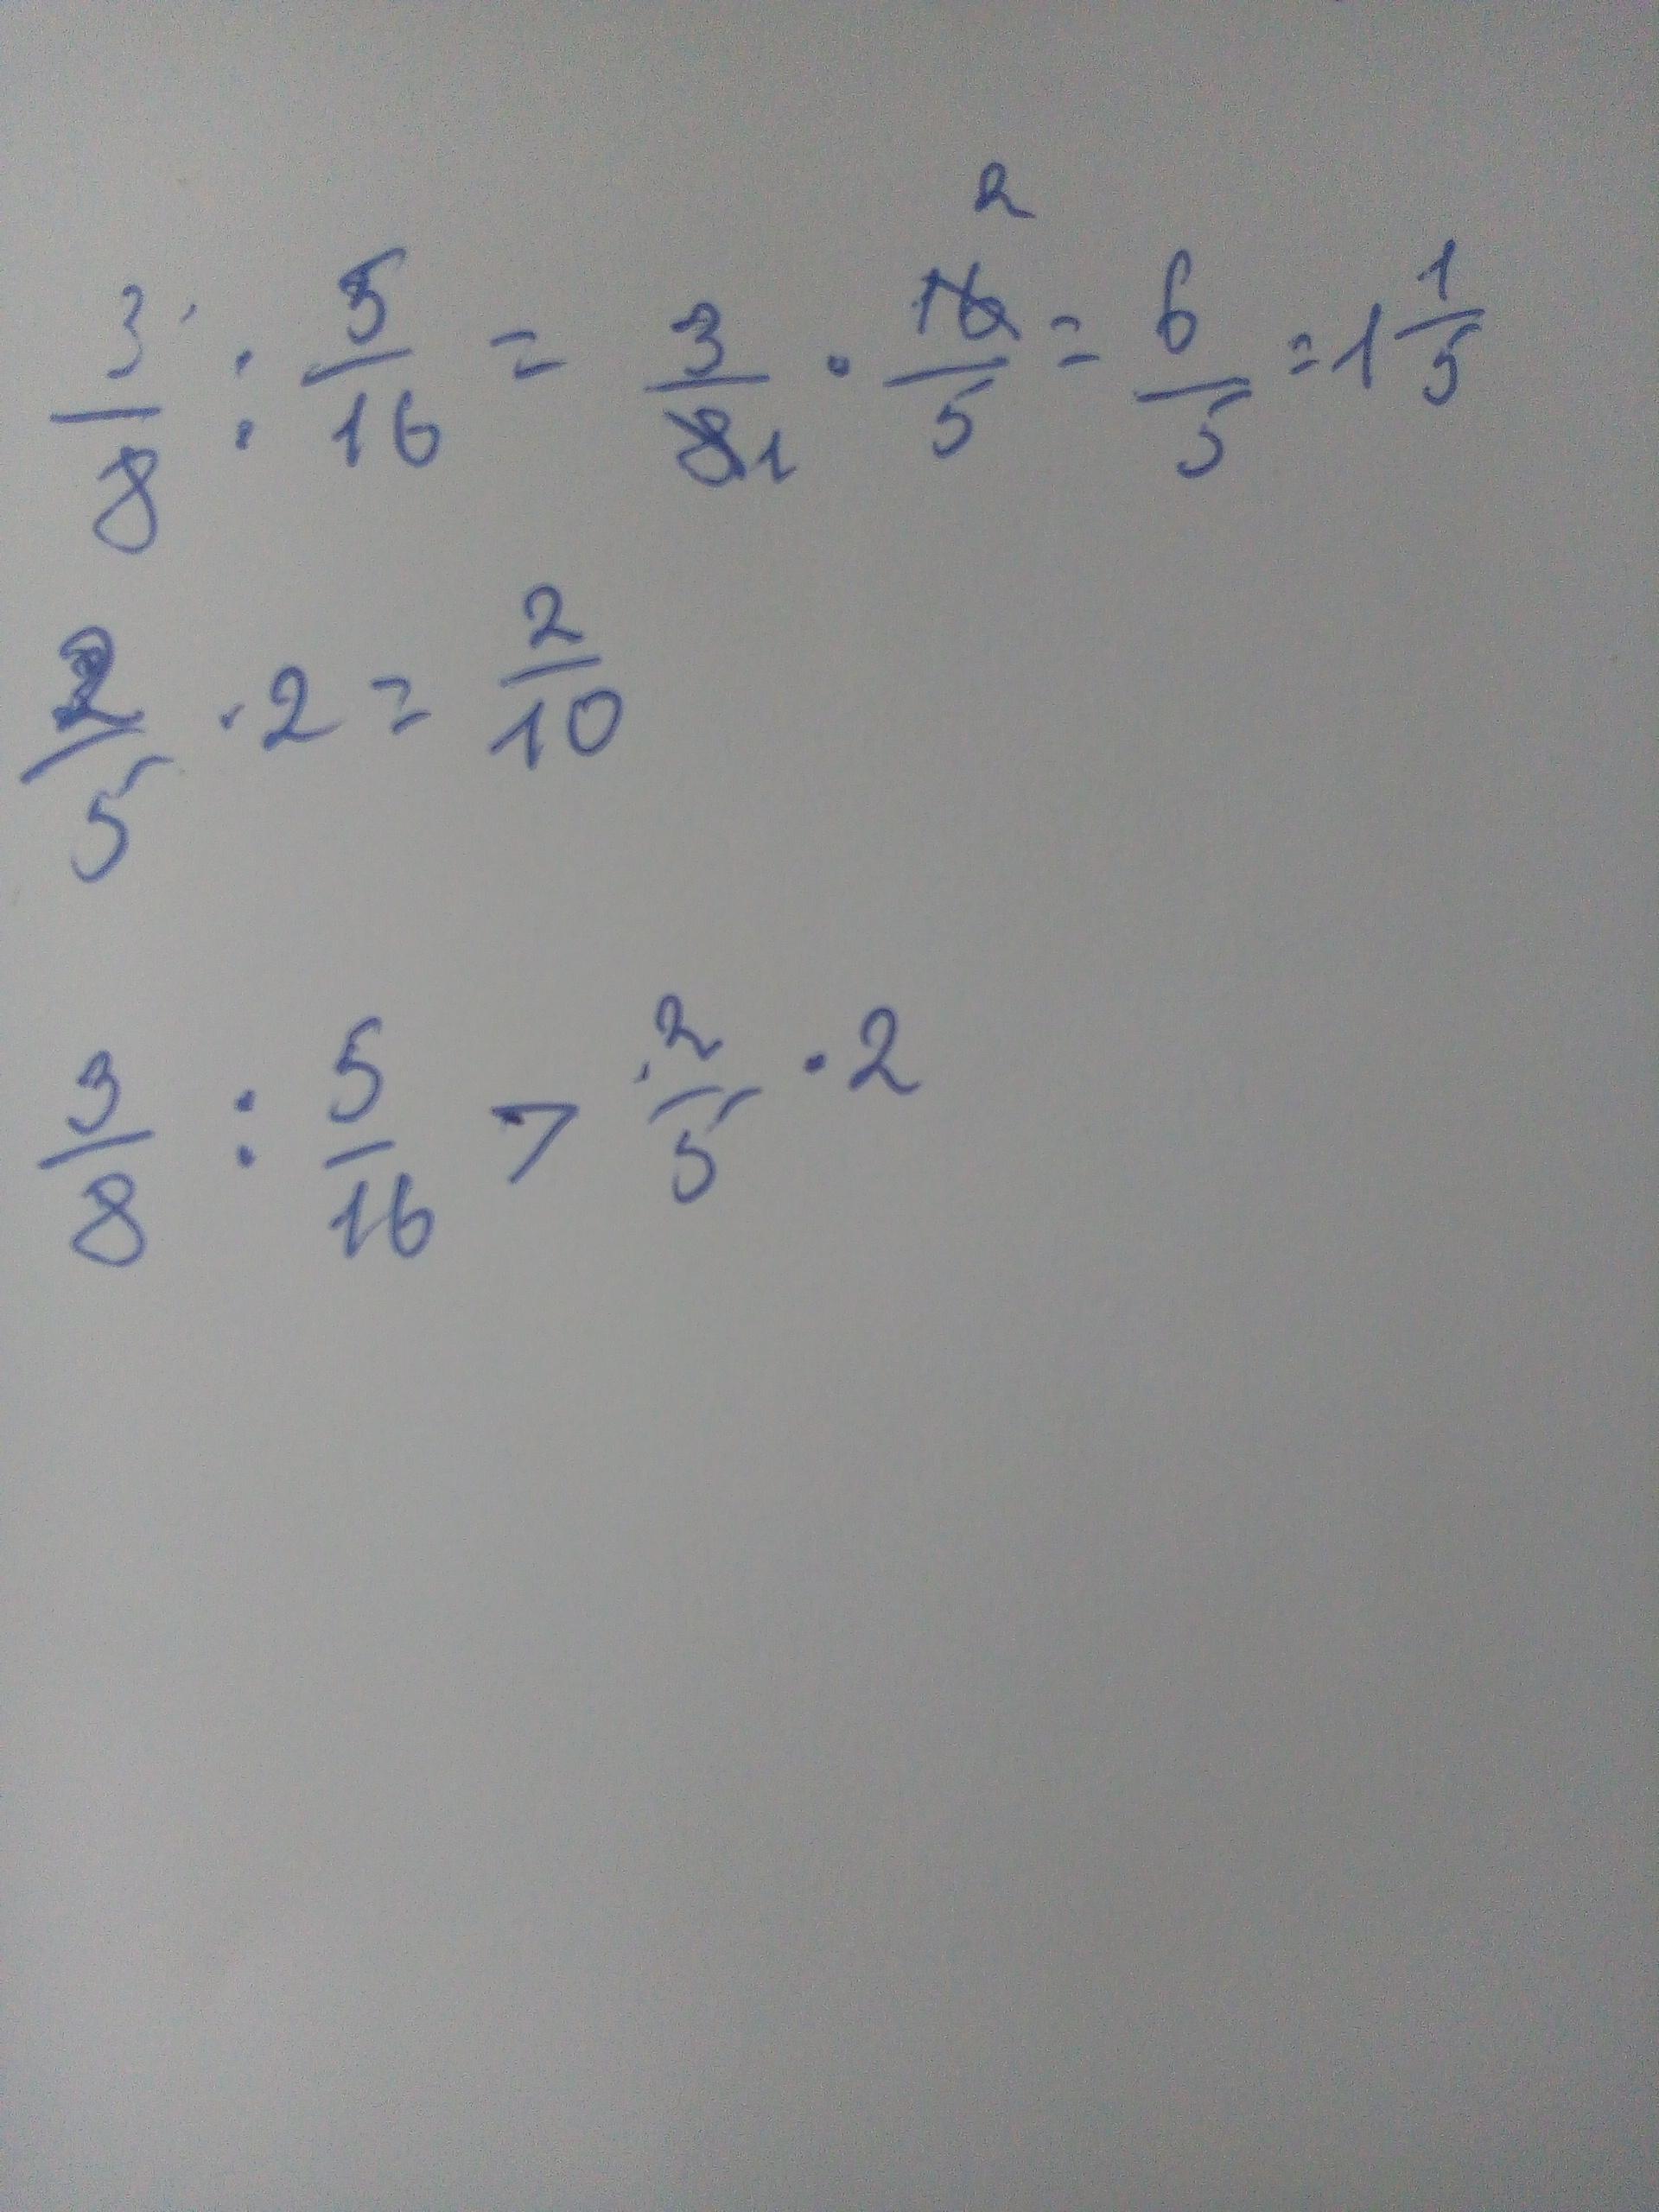 3/8 : 5/16 = 3/8 1 · 16/5 2 = 6/5 = 1 1/5
2/5 · 2 = 2/10
3/8 : 5/16 > 2/5 · 2